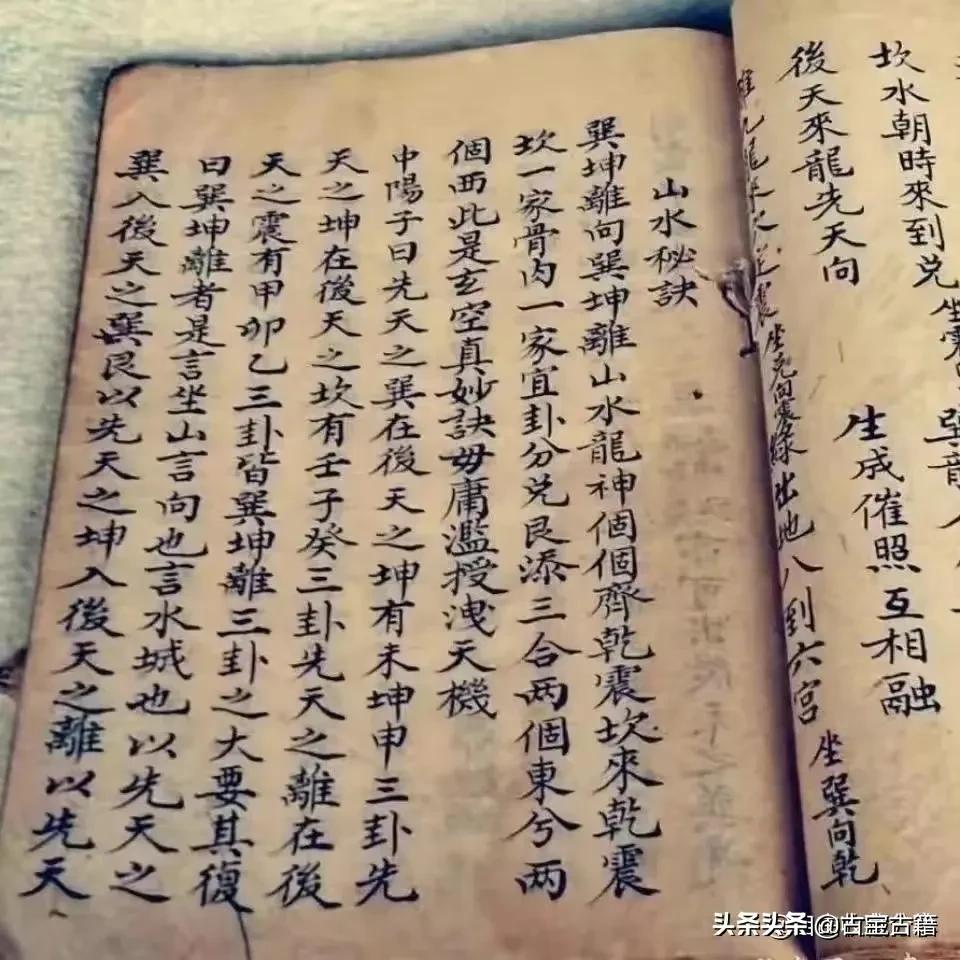 坎水朝時來到兌
後天來龍先天向
生成催照互相融
坐兌向震
出地八到六宮
坐巽向乾
山水秘訣
巽坤離向巽坤離山水龍神個個齊乾震坎來乾震
坎一家骨肉一家宜卦分兌艮添三合两個東兮两
個西此是玄空真妙訣毋庸濫授洩天機
中陽子曰先天之巽在後天之坤有未坤申三卦先
天之坤在後天之坎有壬子癸三卦先天之離在後
天之震有甲卯乙三卦皆巽坤離三卦之大要其復
曰巽坤離者是言坐山言向也言水城也以先天之
巽入後天之巽艮以先天之坤入後天之離以先天
头条头条 @古宝古籍